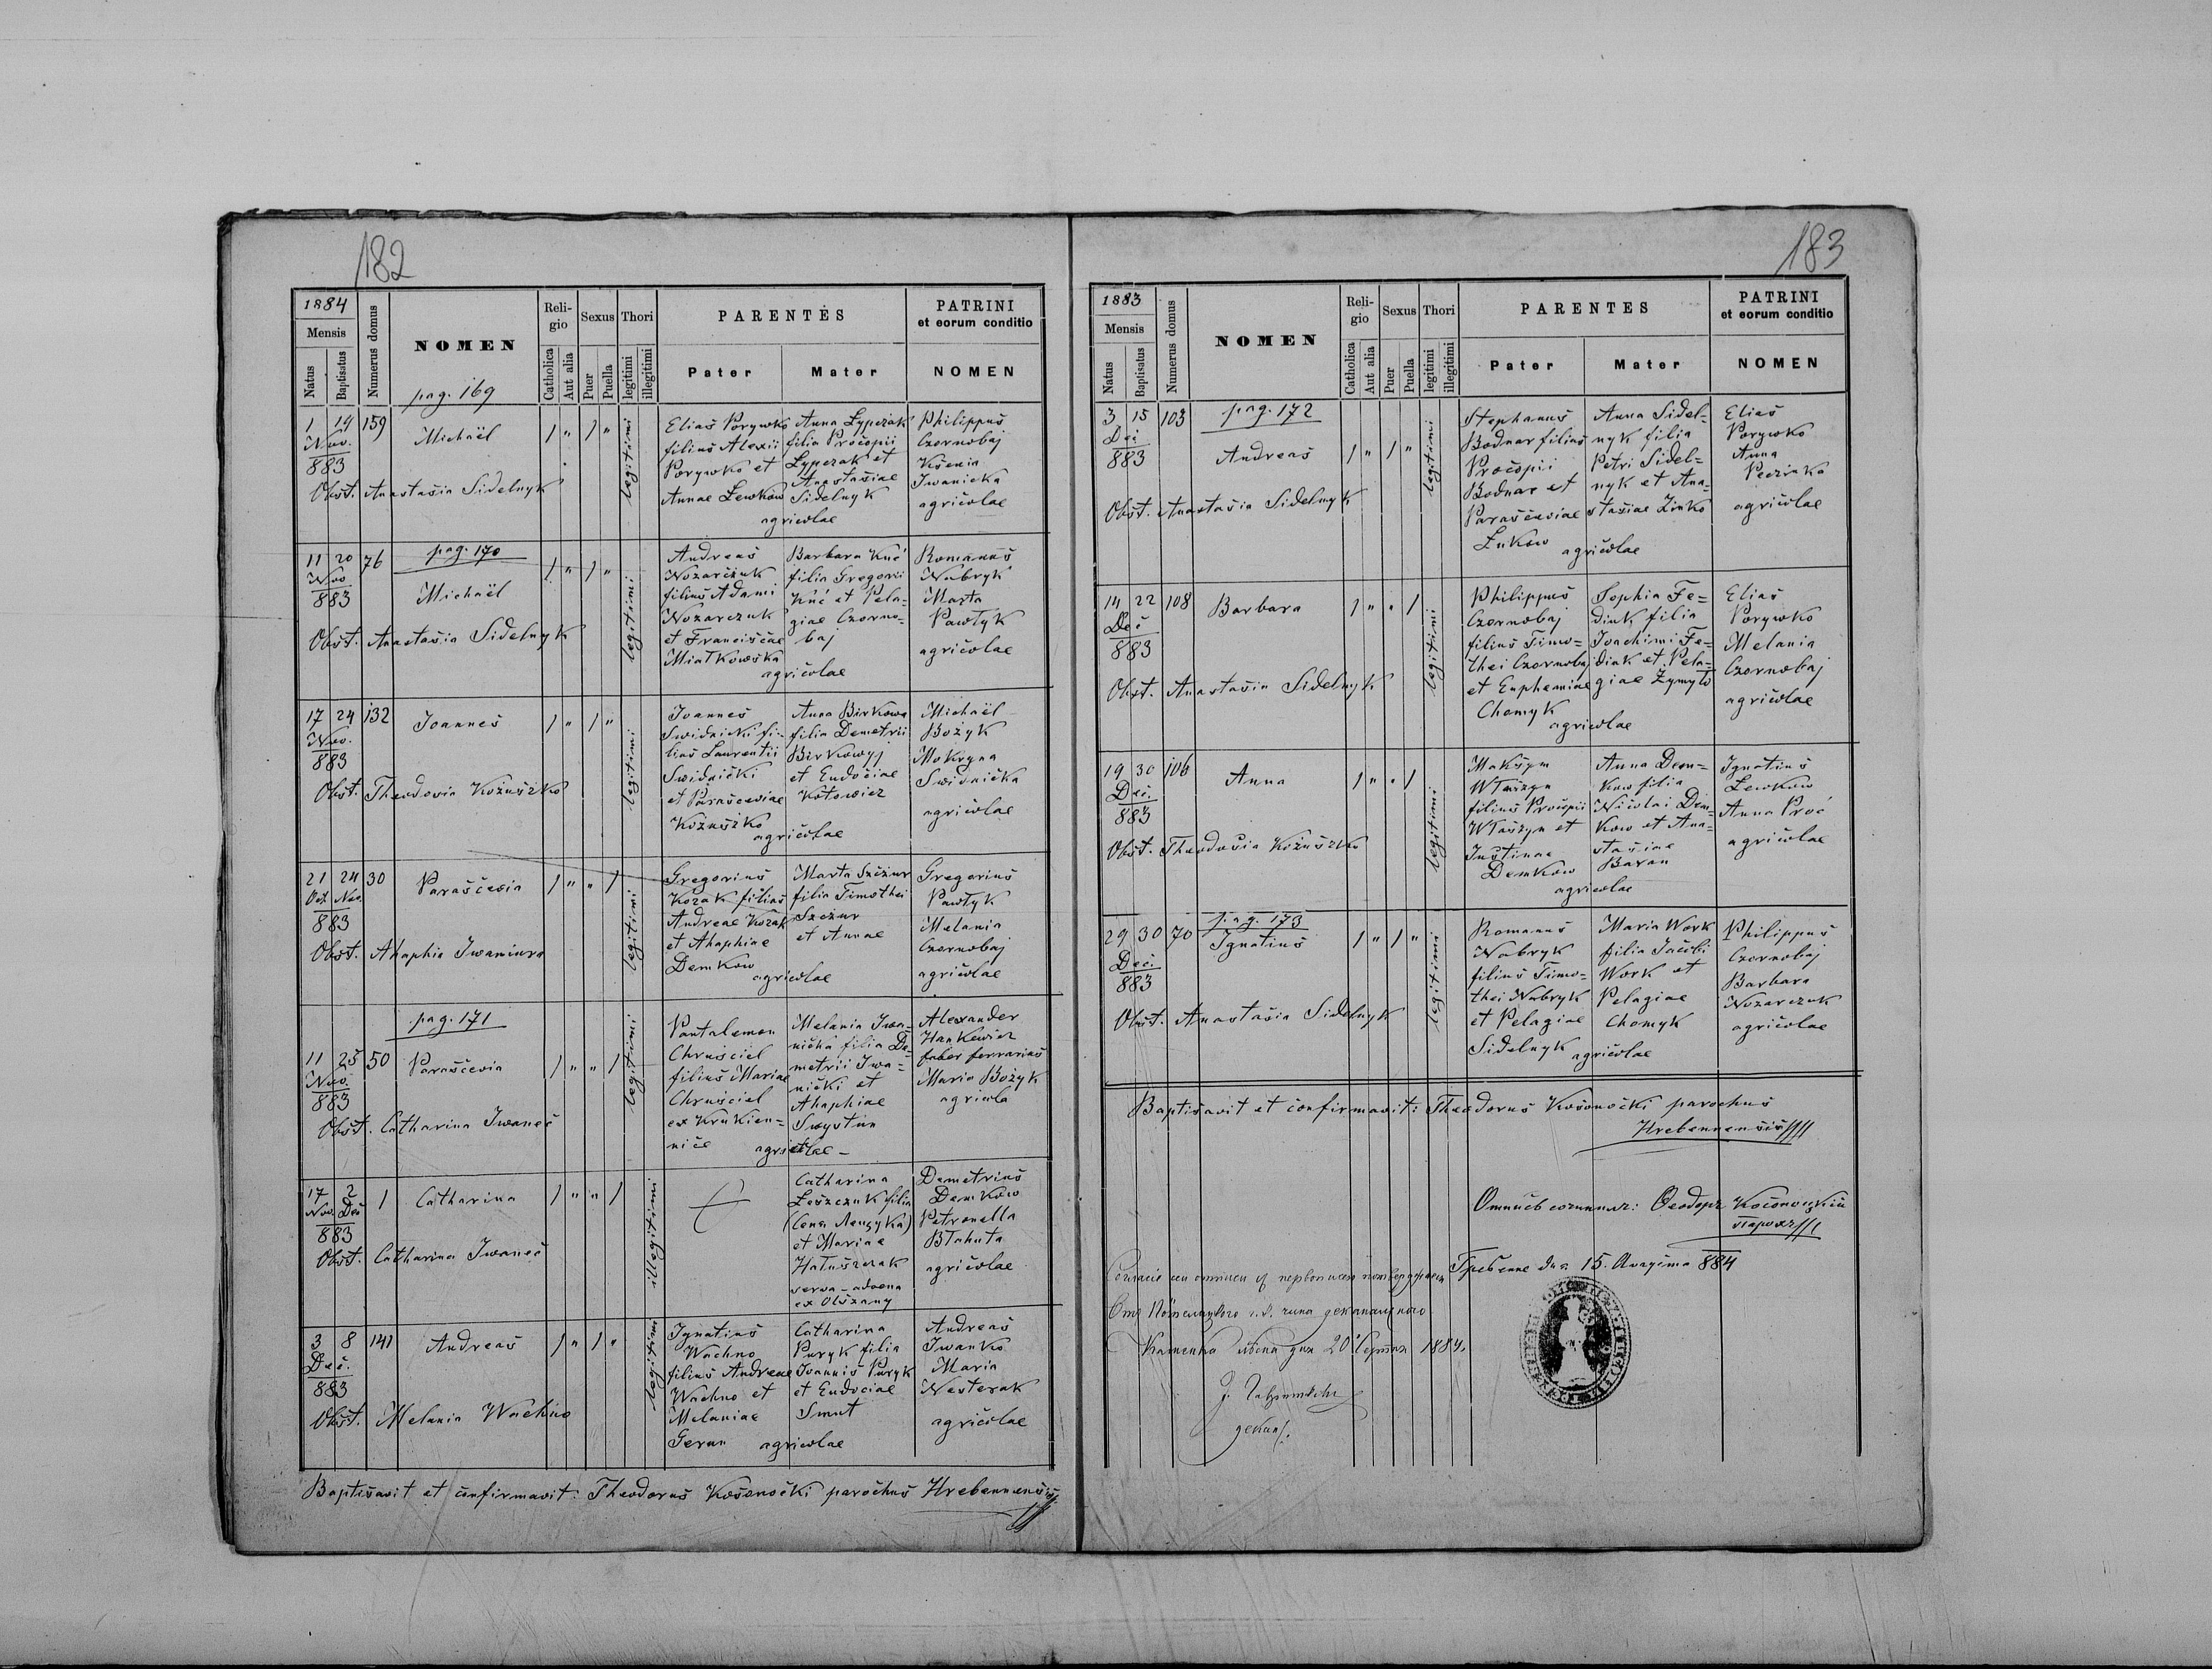 182
1884
Mensis
Natus
Baptisatus
Numerus domus
NOMEN
pag. 169
Religio
Catholica
Aut alia
Sexus
Puer
Puella
Thori
legitimi
illegitimi
PARENTES
Pater
Mater
PATRINI
et eorum conditio
NOMEN
1 19 159
Nov.
883
Michaël
1 " 1 "
legitimi
Elias Porywko
filius Alexii
Porywko et
Annae Lewkow
Anna Lyperak
filia Procopii
Lyperak et
Anastasiae
Sidelnyk
agricolae
Philippus
Czornobaj
Ksenia
Iwanicka
agricolae
Obst. Anastasia Sidelnyk
11 20 76
Nov
883
pag. 170
Michaël
1 " 1 "
legitimi
Andreas
Nozarczuk
filius Adami
Nozarczuk
et Franciscae
Miałkowska
Barbara Kuć
filia Gregorii
Kuć et Pela=
giae Czorno=
baj
agricolae
Romanus
Nabryk
Marta
Pawłyk
agricolae
Obst. Anastasia Sidelnyk
17 24 132
Nov.
883
Joannes
1 " 1 "
legitimi
Joannes
Swidnicki fi-
lius Laurentii
Swidnicki
et Parasceviae
Kożuszko
Anna Birkowa
filia Demetrii
Birkowyj
et Eudociae
Kotowicz
agricolae
Michaël
Bożyk
Mokryna
Swidnicka
agricolae
Obst. Theodosia Kożuszko
21 24 30
Oct Nov.
883
Parascevia
1 " " 1
legitimi
Gregorius
Kozak filius
Andreae Kozak
et Ahaphiae
Demkow
Marta Szczur
filia Timothei
Szczur
et Annae
agricolae
Gregorius
Pawłyk
Melania
Czornobaj
agricolae
Obst. Ahaphia Iwaniura
pag. 171
11 25 50
Nov.
883
Parascevia
1 " " 1
legitimi
Pantalemon
Chruściel
filius Mariae
Chruściel
ex Krukien=
nice
Melania Iwa=
nicka filia De=
metrii Iwa=
nicki et
Ahaphiae
Swystun
agricolae -
Alexander
Hankewicz
faber ferrarius
Maria Bożyk
agricola
Obst. Catharina Iwanec
17 2 1
Nov. Dec
883
Catharina
1 " " 1
illegitimi
Catharina
Leszczuk filia
et Mariae
Hałuszczak
serva - advena
ex Olszany
Demetrius
Demkow
Petronella
Błahuta
agricolae
Obst. Catharina Iwanec
3 8 141
Dec.
883
Andreas
1 " 1 "
legitimi
Ignatius
Wachno
filius Andreae
Wachno et
Melaniae
Gerun
Catharina
Puryk filia
Joannis Puryk
et Eudociae
Smut
agricolae
Andreas
Iwanko
Maria
Nesterak
agricolae
Obst. Melania Wachno
Baptisavit et confirmavit: Theodorus Kosonocki parochus Hrebennensis
183
1883
Mensis
Natus
Baptisatus
Numerus domus
NOMEN
Religio
Catholica
Aut alia
Sexus
Puer
Puella
Thori
legitimi
illegitimi
PARENTES
Pater
Mater
PATRINI
et eorum conditio
NOMEN
3 15 103
Dec
883
pag. 172
Andreas
1 " 1 "
legitimi
Stephanus
Bodnar filius
Procopii
Bodnar et
Parasceviae
Lukow
Anna Sidel=
nyk filia
Petri Sidel=
nyk et Ana=
stasiae Zinko
agricolae
Elias
Porywko
Anna
agricolae
Obst. Anastasia Sidelnyk
14 22 108
Dec
883
Barbara
1 " " 1
legitimi
Philippus
Czornobaj
filius Timo=
thei Czornobaj
et Euphemiae
Chomyk
Sophia Fe=
diuk filia
Joachimi Fe=
diuk et Pela=
giae Żymyło
agricolae
Elias
Porywko
Melania
Czornobaj
agricolae
Obst. Anastasia Sidelnyk
19 30 106
Dec.
883
Anna
1 " " 1
legitimi
Maksym
Właszyn
filius Procopii
Właszyn et
Justinae
Demkow
Anna Dem=
kow filia
Nicolai Dem=
kow et Ana=
stasiae
Baran
agricolae
Ignatius
Lewkow
Anna Proć
agricolae
Obst. Theodosia Kożuszko
29 30 70
Dec.
883
pag. 173
Ignatius
1 " 1 "
legitimi
Romanus
Nabryk
filius Timo=
thei Nabryk
et Pelagiae
Sidelnyk
Maria Work
filia Jacobi
Work et
Pelagiae
Chomyk
agricolae
Philippus
Czornobaj
Barbara
Nozarczuk
agricolae
Obst. Anastasia Sidelnyk
Baptisavit et confirmavit: Theodorus Kosonocki parochus
Hrebennensis
Ѳеодоръ Косоноцкій
парохъ
Гребенне дня 15. Августа 884
Каменка дня 20 Серпня 1884.
декан.